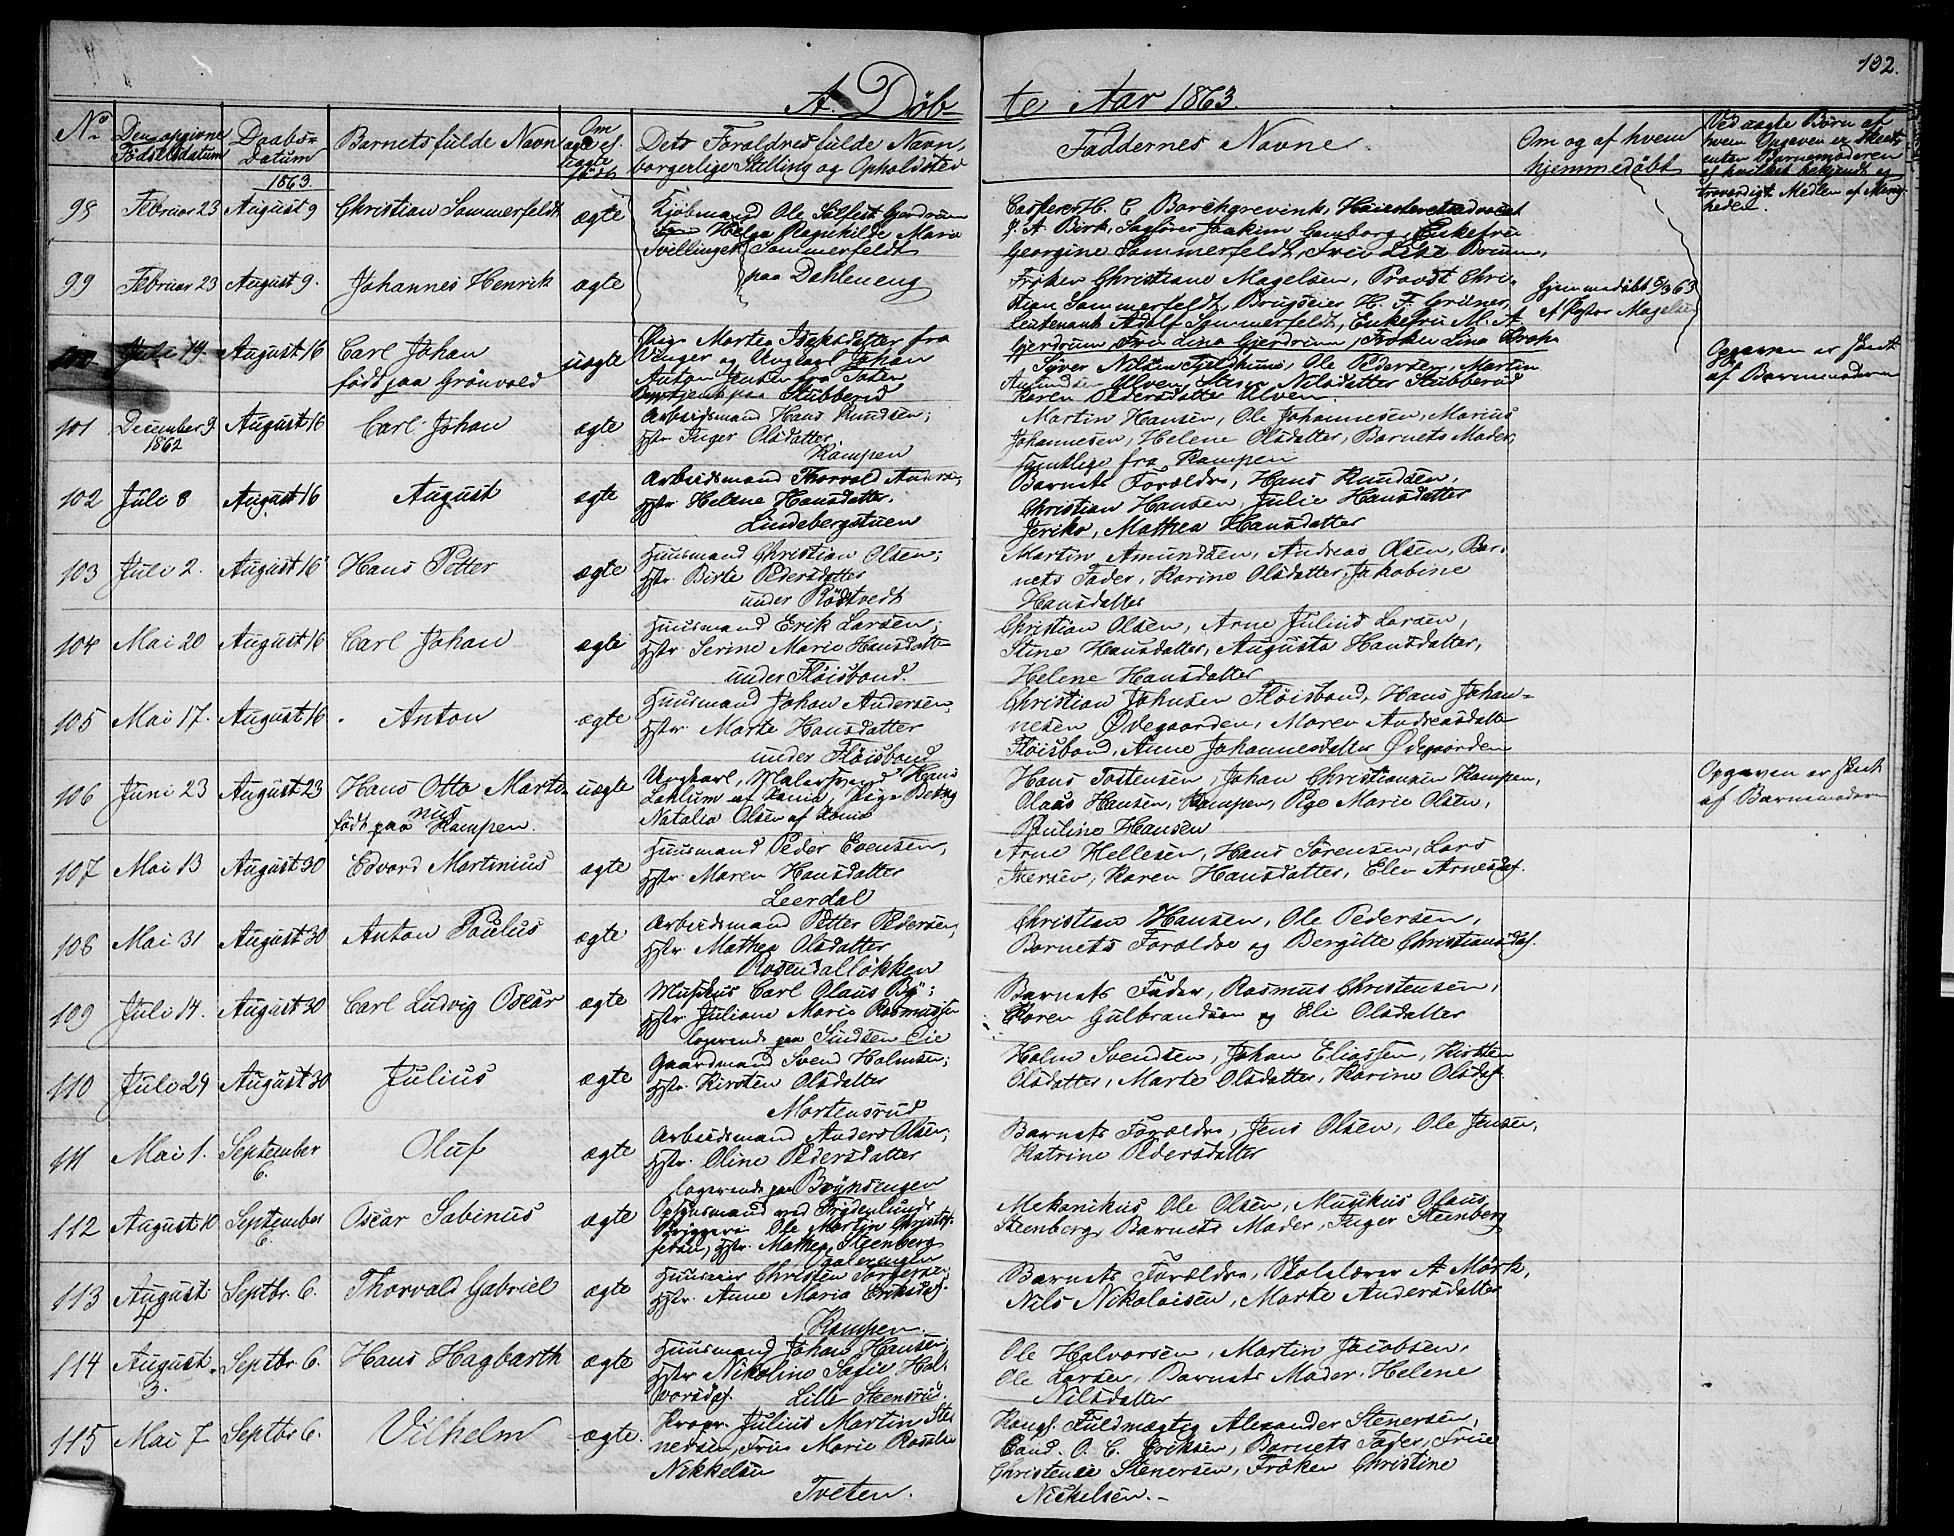 132.
A. Döb- te Aar 1863.
No | Den opgivne Fødselsdatum | Daabs-Datum | Barnets fulde Navn | Om ægte el. uægte født | Dets Forældres fulde Navn, borgerlige Stilling og Opholdsted | Faddernes Navne. | Om og af hvem hjemmedøbt | Ved uægte Børn af hvem Opgaven er skeet, enten Barnemoderen
troværdigt Medlem af Menigheden.
1863.
98 Februar 23 August 9 Christian Sommerfeldt ægte Kjøbmand Ole Solfest Gjerdrum
Helga Ragnhilde Marie
Tvillinger Sommerfeldt
paa Dahleneng
H. C. Borchgrevink, Høiesteretsadvocat
Birk, Sagfører Joakim Gamborg, Enkefru
Georgine Sommerfeldt, Frue Lise
99 Februar 23 August 9. Johannes Henrik ægte
Frøken Christiane Magelsen, Provdt Chri-
stian Sommerfeldt, Brugseier H. F. Grüner,
Leutenant Adolf Sommerfeldt, Enkefru M. A.
Gjerdrum, Frue Lina Gjerdrum, Frøken Lina
Hjemmedøbt 5/3 63
af Pastor Magelsen
100 Juli 19. August 16 Carl Johan
født paa Grönvold uægte
Pige Marthe fra
Vinger og Ungkarl Johan
Anton Jensen fra Toten
paa Stubberud
Syver Nilsen Ole Pedersen, Martin
Amundsen Ulven, Nilsdatter Stubberud
Karen Pedersdatter Ulven.
Opgaven er skeet
af Barnemoderen
101 December 9 1862 August 16 Carl Johan ægte
Arbeidsmand Hans Knudsen;
Hstr. Inger Olsdatter,
Kampen
Martin Hansen, Ole Johannesen, Marius
Johannesen, Helene Olsdatter, Barnets Moder,
samtlige fra Kampen
102 Juli 8 August 16 August ægte
Arbeidsmand Thorvald Andersen,
Hstr Helene Hansdatter,
Lindebergstuen
Barnets Forældre, Hans Knudsen,
Christian Hansen, Julie Hansdatter
Jeriko, Mathea Hansdatter
103 Juli 2. August 16 Hans Petter ægte
Huusmand Christian Olsen;
Hstr. Birte Pedersdatter
under Rödtvedt
Martin Amundsen, Andreas Olsen, Bar-
nets Fader, Karine Olsdatter, Jakobine
Hansdatter
104 Mai 20 August 16 Carl Johan ægte
Huusmand Erik Larsen;
Hstr. Serine Marie Hansdatt
under Fløisbond.
Christian Olsen, Arne Julius Larsen,
Stine Hansdatter, Augusta Hansdatter,
Helene Hansdatter
105 Mai 17. August 16 Anton ægte
Huusmand Johan Andersen,
Hstr. Marte Hansdatter
under Fløisbond
Christian Johnsen Fløisbond, Hans Johan-
nesen Ødegaarden, Maren Andreasdatter
Fløisbond, Anne Johannesdatter Ødegaarden
106 Juni 23 August 23 Hans Otto Marti-
nus
født paa Kampen. uægte
Ungkarl, Malersvend Hans
af Xania, Pige
Natalia Olsen af Xania
Hans Tostensen, Johan Christiansen Kampen,
Olaus Hansen, Kampen, Pige Marie Olsen,
Pauline Hansen
Opgaven er skeet
af Barnemoderen
107 Mai 13 August 30 Edvard Martinius ægte
Huusmand Peder Evensen,
Hstr. Maren Hansdatter
Leerdal
Arne Hellesen, Hans Sörensen, Lars
Iversen, Karen Hansdatter, Elen Arnesdat.
108 Mai 31 August 30 Anton Paulus ægte
Arbeidsmand Petter Pedersen,
Hstr. Mathea Olsdatter
Rosendalløkken
Christian Hansen, Ole Pedersen,
Barnets Forældre og Bergitte Christiansdat.
109 Juli 14. August 30 Carl Ludvig Oscar ægte
Musikus Carl Olaus By;
Hstr. Juliane Marie Rasmussen
logerende paa Sindsen Eie
Barnets Fader, Rasmus Christensen,
Karen Gulbrandsen og Eli Olsdatter
110 Juli 29 August 30 Julius ægte
Gaardmand Svend Holmsen;
Hstr. Kirsten Olsdatter
Mortensrud
Holm Svendsen, Johan Eliassen, Kirsten
Olsdatter, Marte Olsdatter, Karine Olsdat.
111 Mai 1. September 6. Oluf ægte
Arbeidsmand Anders Olsen;
Hstr. Oline Pedersdatter
logerende paa Bryndsengen
Barnets Forældre, Jens Olsen, Ole Jensen,
Katrine Pedersdatter
112 August 10 September 6. Oscar Sabinus ægte
Opsynsmand ved Frydenlunds
Bryggeri Ole Martin Christof-
fersen, Hstr. Mathea Steenberg
Mekanikus Ole Olsen, Musikus Olaus
Steenberg, Barnets Moder, Inger Steenberg
113 August 4 Septbr. 6. Thorvald Gabriel ægte
Huuseier Christen
Hstr. Anne Maria Eriksdat.
Kampen.
Barnets Forældre, Skolelærer A. Mörk,
Nils Nikolaisen, Marte Andersdatter
114 August 3. Septbr. 6. Hans Hagbarth ægte
Huusmand Johan Hansen,
Hstr Nikoline Sofie Hal-
vorsdat. Lille Steensrud.
Ole Halvorsen, Martin Jacobsen,
Ole Larsen, Barnets Moder, Helene
Nilsdatter
115 Mai 7 Septbr 6. Vilhelm ægte.
Propr. Julius Martin Ste-
nersen, Frue Marie Rosalie
Nikkelsen
Tveten.
Kongl. Fuldmægtig Alexander Stenersen,
Cand. O. C. Eriksen, Barnets Fader, Frue
Christense Stenersen, Frøken Christine
Nickelsen.